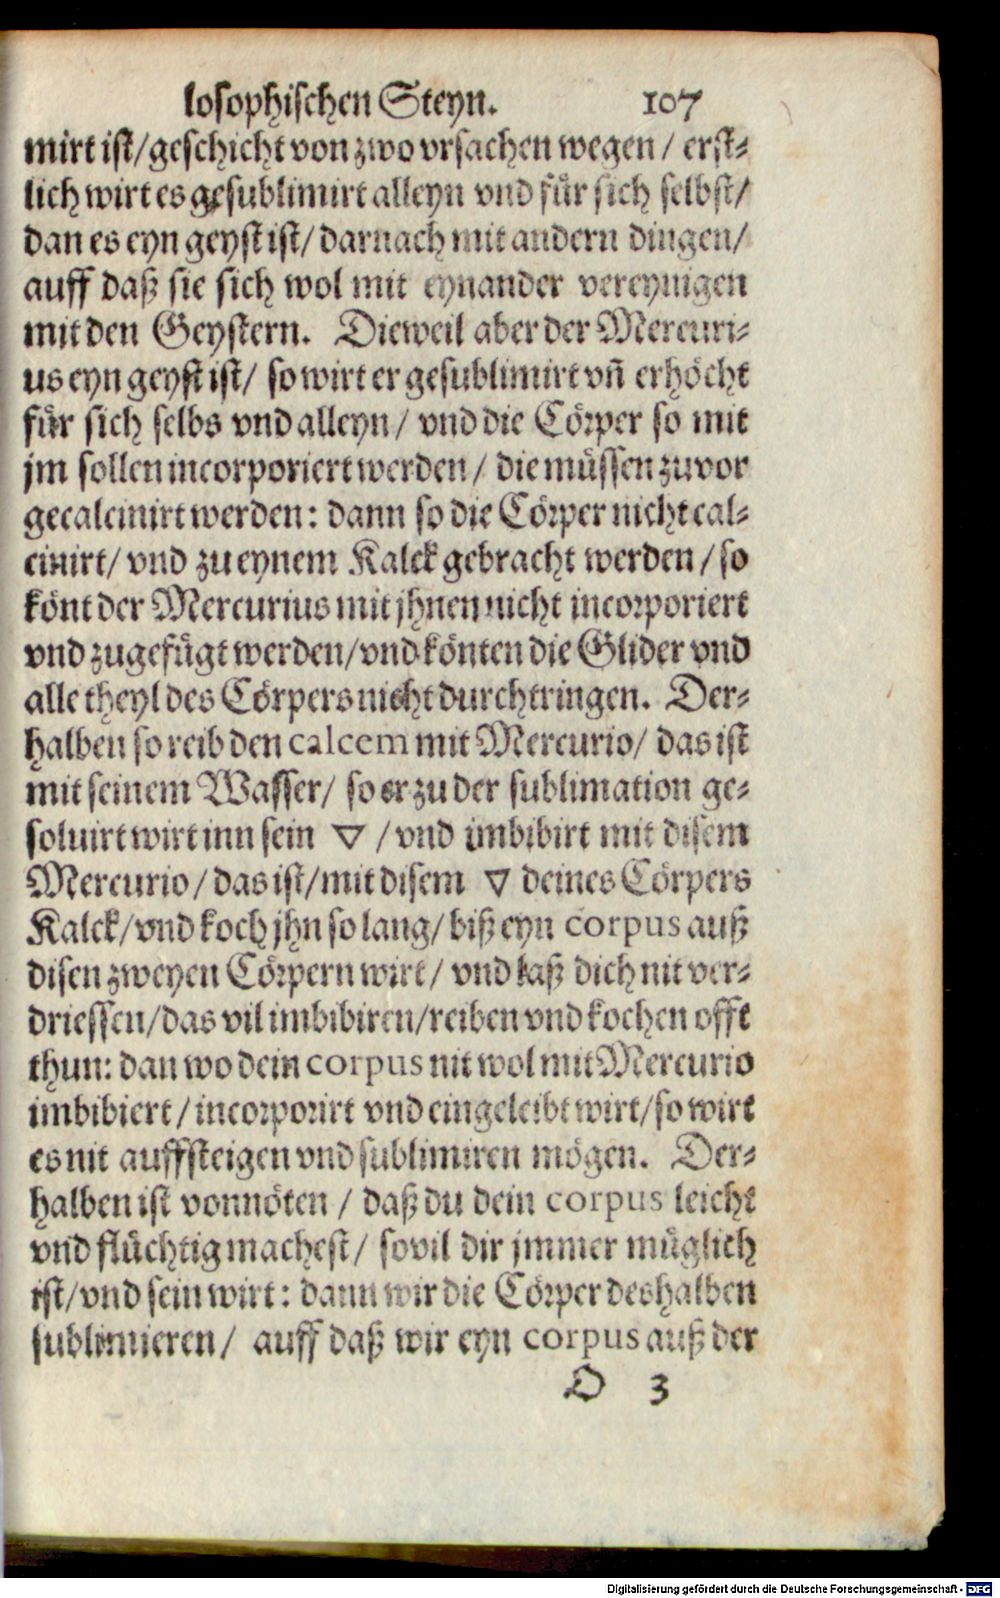 losophischen Steyn. 107
mirt ist/geschicht von zwo vrsachen wegen / erst-
lich wirt es gesublimirt alleyn vnd für sich selbst/
dan es eyn geyst ist/ darnach mit andern dingen/
auff daß sie sich wol mit eynander vereynigen
mit den Geystern. Dieweil aber der Mercuri-
us eyn geyst ist/ so wirt er gesublimirt vñ erhöcht
für sich selbs vnd alleyn/ vnd die Cörper so mit
jm sollen incorporiert werden/ die müssen zuvor
gecalcinirt werden: dann so die Cörper nicht cal-
cinirt/ vnd zu eynem Kalck gebracht werden/so
könt der Mercurius mit jhnen nicht incorporiert
vnd zugefügt werden/vnd könten die Glider vnd
alle theyl des Cörpers nicht durchtringen. Der-
halben so reib den calcem mit Mercurio/ das ist
mit seinem Wasser/ so er zu der sublimation ge-
soluirt wirt inn sein ▽ /vnd imbibirt mit disem
Mercurio/das ist/mit disem ▽ deines Cörpers
Kalck/vnd koch jhn so lang/ biß eyn corpus auß
disen zweyen Cörpern wirt/ vnd laß dich nit ver-
driessen/das vil imbibiren/reiben vnd kochen offt
thun: dan wo dein corpus nit wol mit Mercurio
imbibiert/incorporirt vnd eingeleibt wirt/so wirt
es nit auffsteigen vnd sublimiren mögen. Der-
halben ist vonnöten / daß du dein corpus leicht
vnd flüchtig machest/ sovil dir jmmer müglich
ist/vnd sein wirt: dann wir die Cörper deshalben
sublimieren/ auff daß wir eyn corpus auß der
O 3
Digitalisierung gefördert durch die Deutsche Forschungsgemeinschaft - DFG